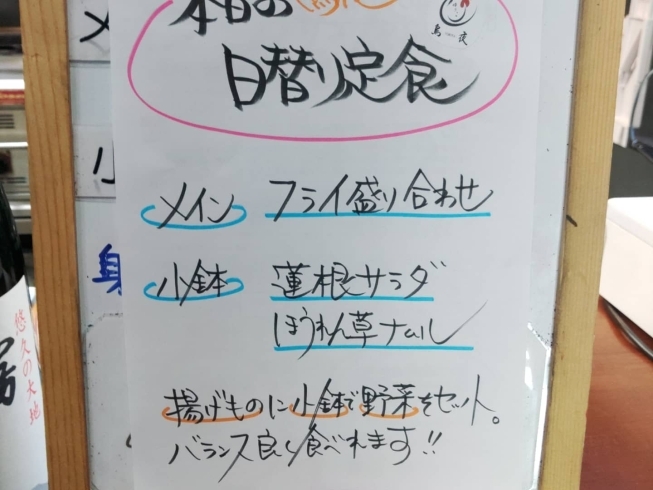 本日の
日替り定食
メイン フライ盛り合わせ
小鉢 蓮根サラダ
ほうれん草ナムル
揚げものに小鉢で野菜をセット。
バランス良く食べれます!!
悠久の大地